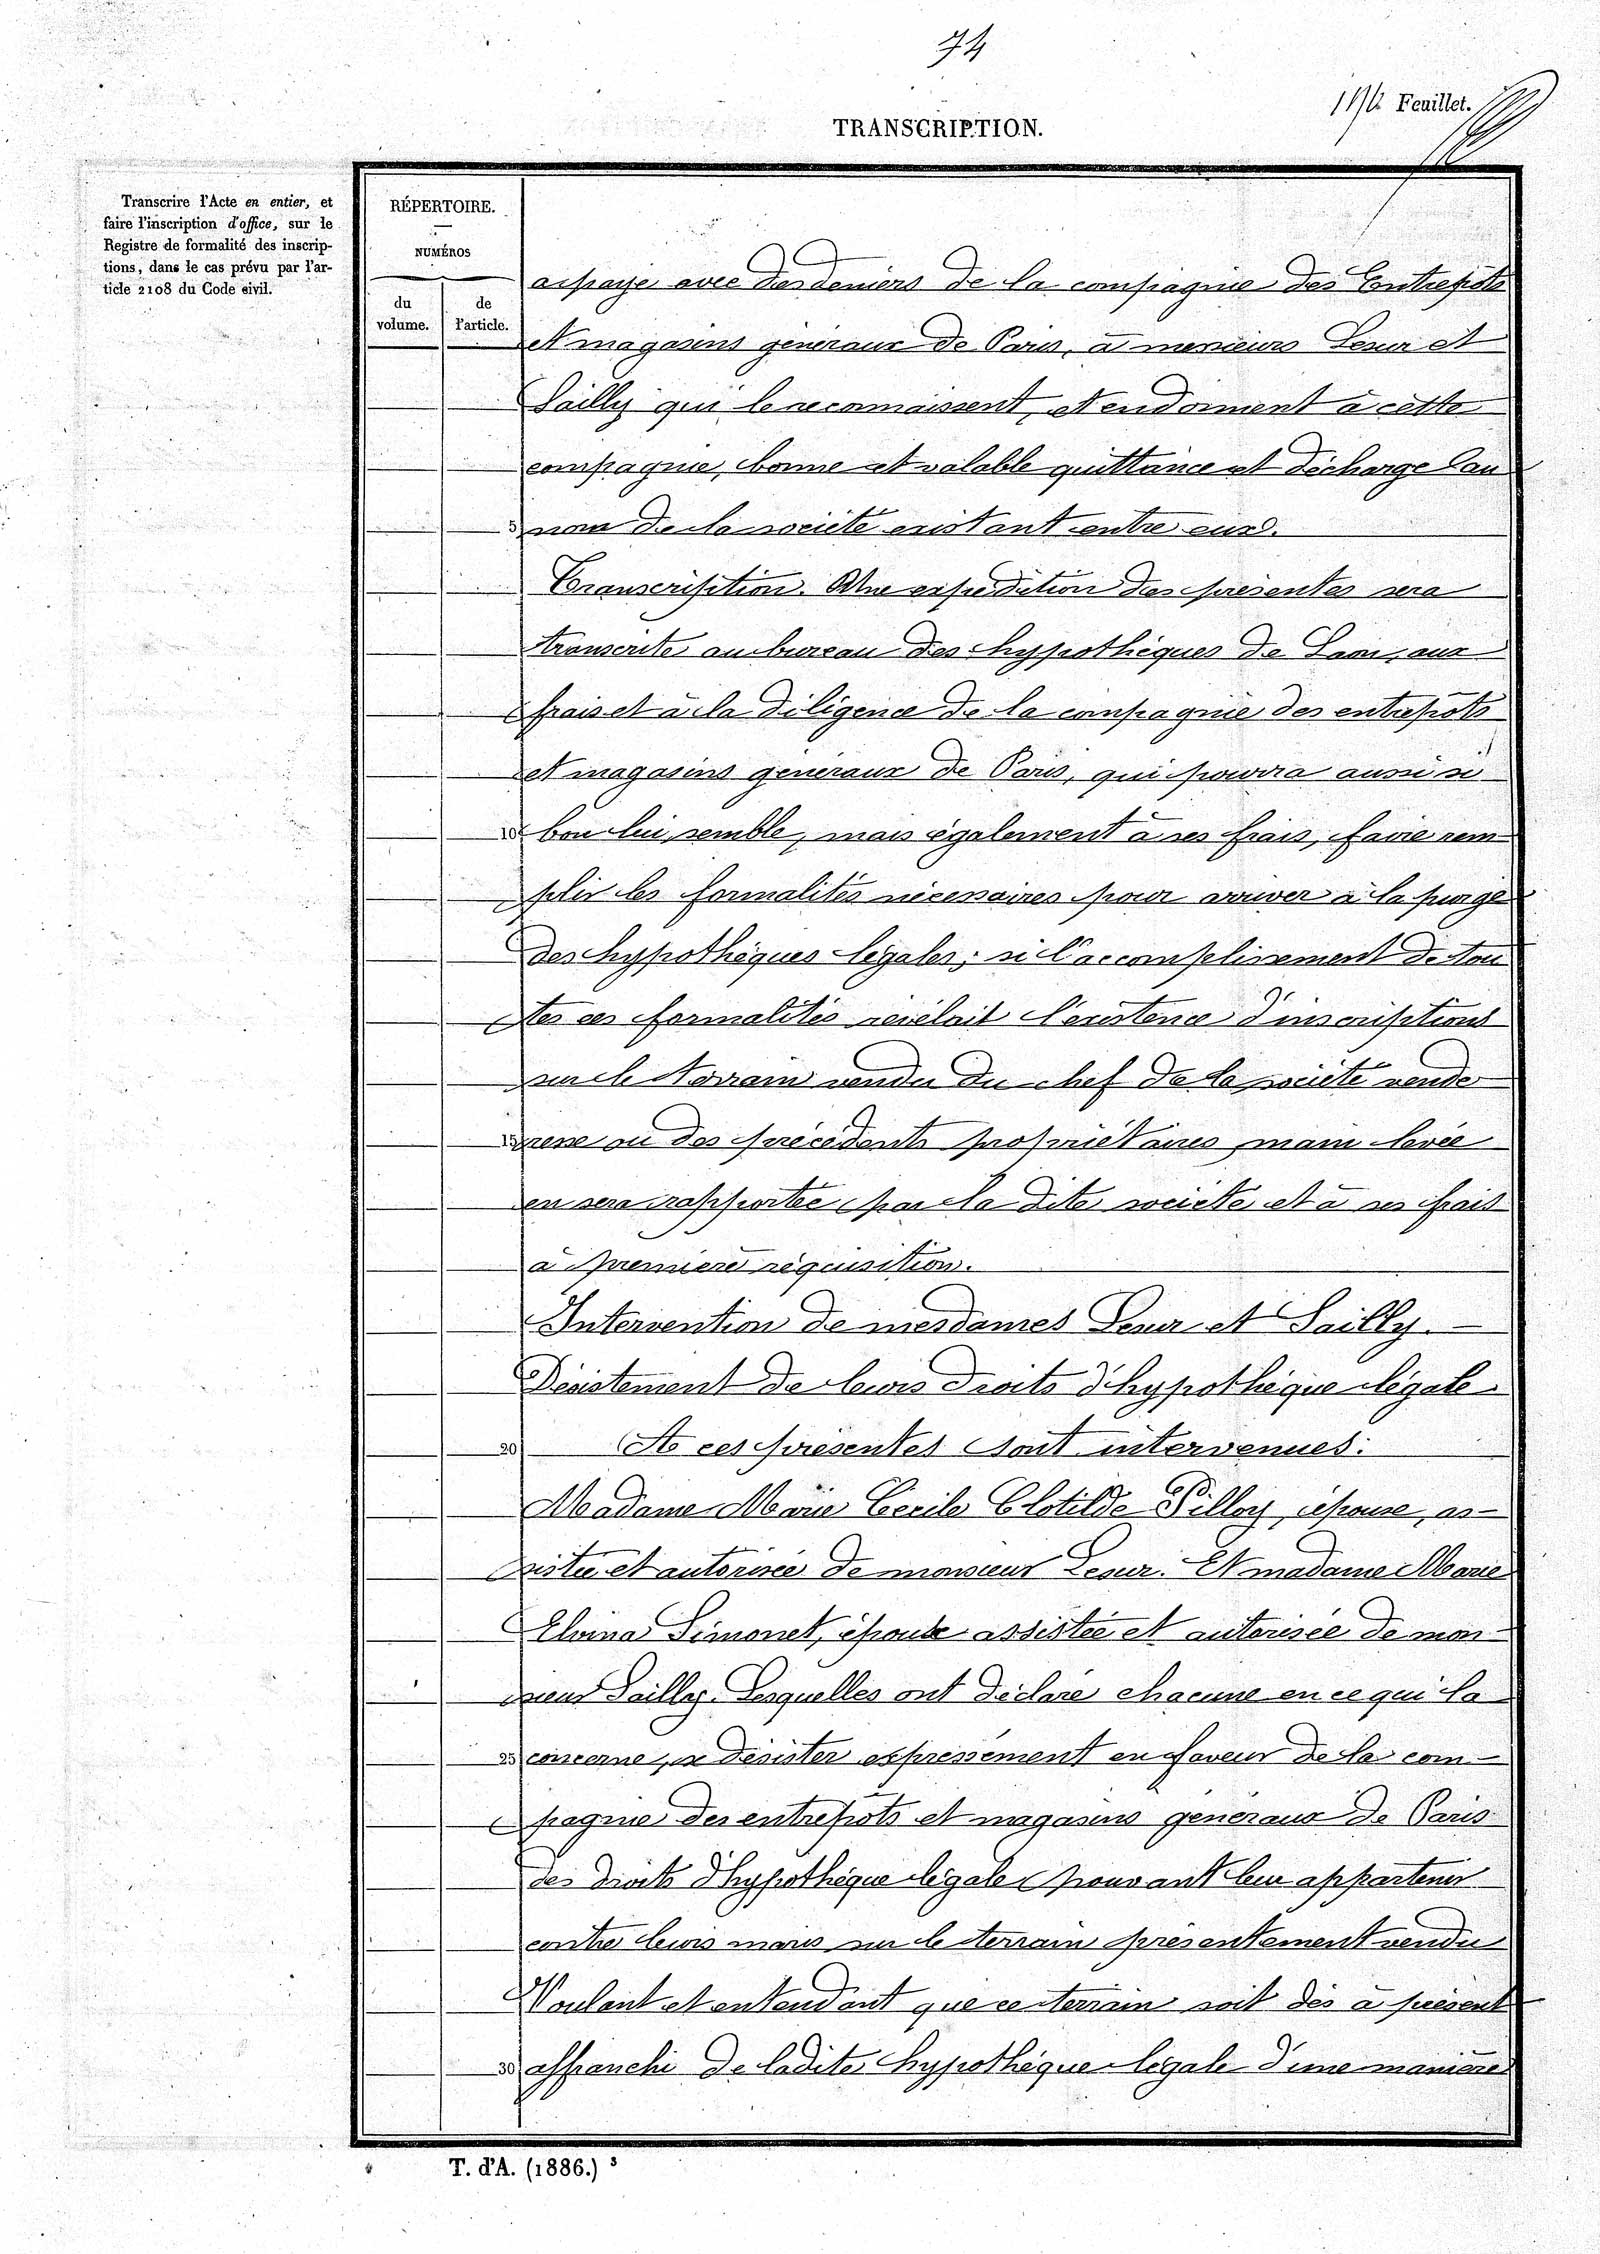 74
Feuillet.
TRANSCRIPTION.
Transcrire l'Acte en entier, et
faire l'inscription d'office, sur le
Registre de formalité des inscrip-
tions, dans le cas prévu par l'ar-
ticle 2108 du Code civil.
RÉPERTOIRE.
NUMÉROS
du volume.
de l'article.
a payé avec des deniers de la compagnie des Entrepôts
et magasins généraux de Paris, à messieurs Lesur et
Sailly qui le reconnaissent, et en donnent à cette
compagnie, bonne et valable quittance et décharge au
5 nom de la société existant entre eux.
Transcription. Une expédition des présentes sera
transcrite au bureau des hypothèques de Laon, aux
frais et à la diligence de la compagnie des entrepôts
et magasins généraux de Paris, qui pourra aussi si
10 bon lui semble, mais également à ses frais, faire rem
plir les formalités nécessaires pour arriver à la purge
des hypothèques légales; si l'accomplissement de tou
tes ces formalités révélait l'existence d'inscriptions
sur le terrain vendu du chef de la société vende
15 resse ou des précédents propriétaires, main levée
en sera rapportée par la dite société et à ses frais
à première réquisition.
Intervention de mesdames Lesur et Sailly.
Désistement de leurs droits d'hypothèque légale.
20 A ces présentes sont intervenues:
Madame Marie Cécile Clotilde Pilloy, épouse, as-
sistée et autorisée de monsieur Lesur. Et madame Marie
Elvina Simonet, épouse assistée et autorisée de mon-
sieur Sailly. Lesquelles ont déclaré chacune en ce qui la
25 concerne, se désister expressément en faveur de la com-
pagnie des entrepôts et magasins généraux de Paris
des droits d'hypothèque légale pouvant leur appartenir
contre leurs maris sur le terrain présentement vendu
Voulant et entendant que ce terrain soit dès à présent
30 affranchi de ladite hypothèque légale d'une manière
T. d'A. (1886.) 3